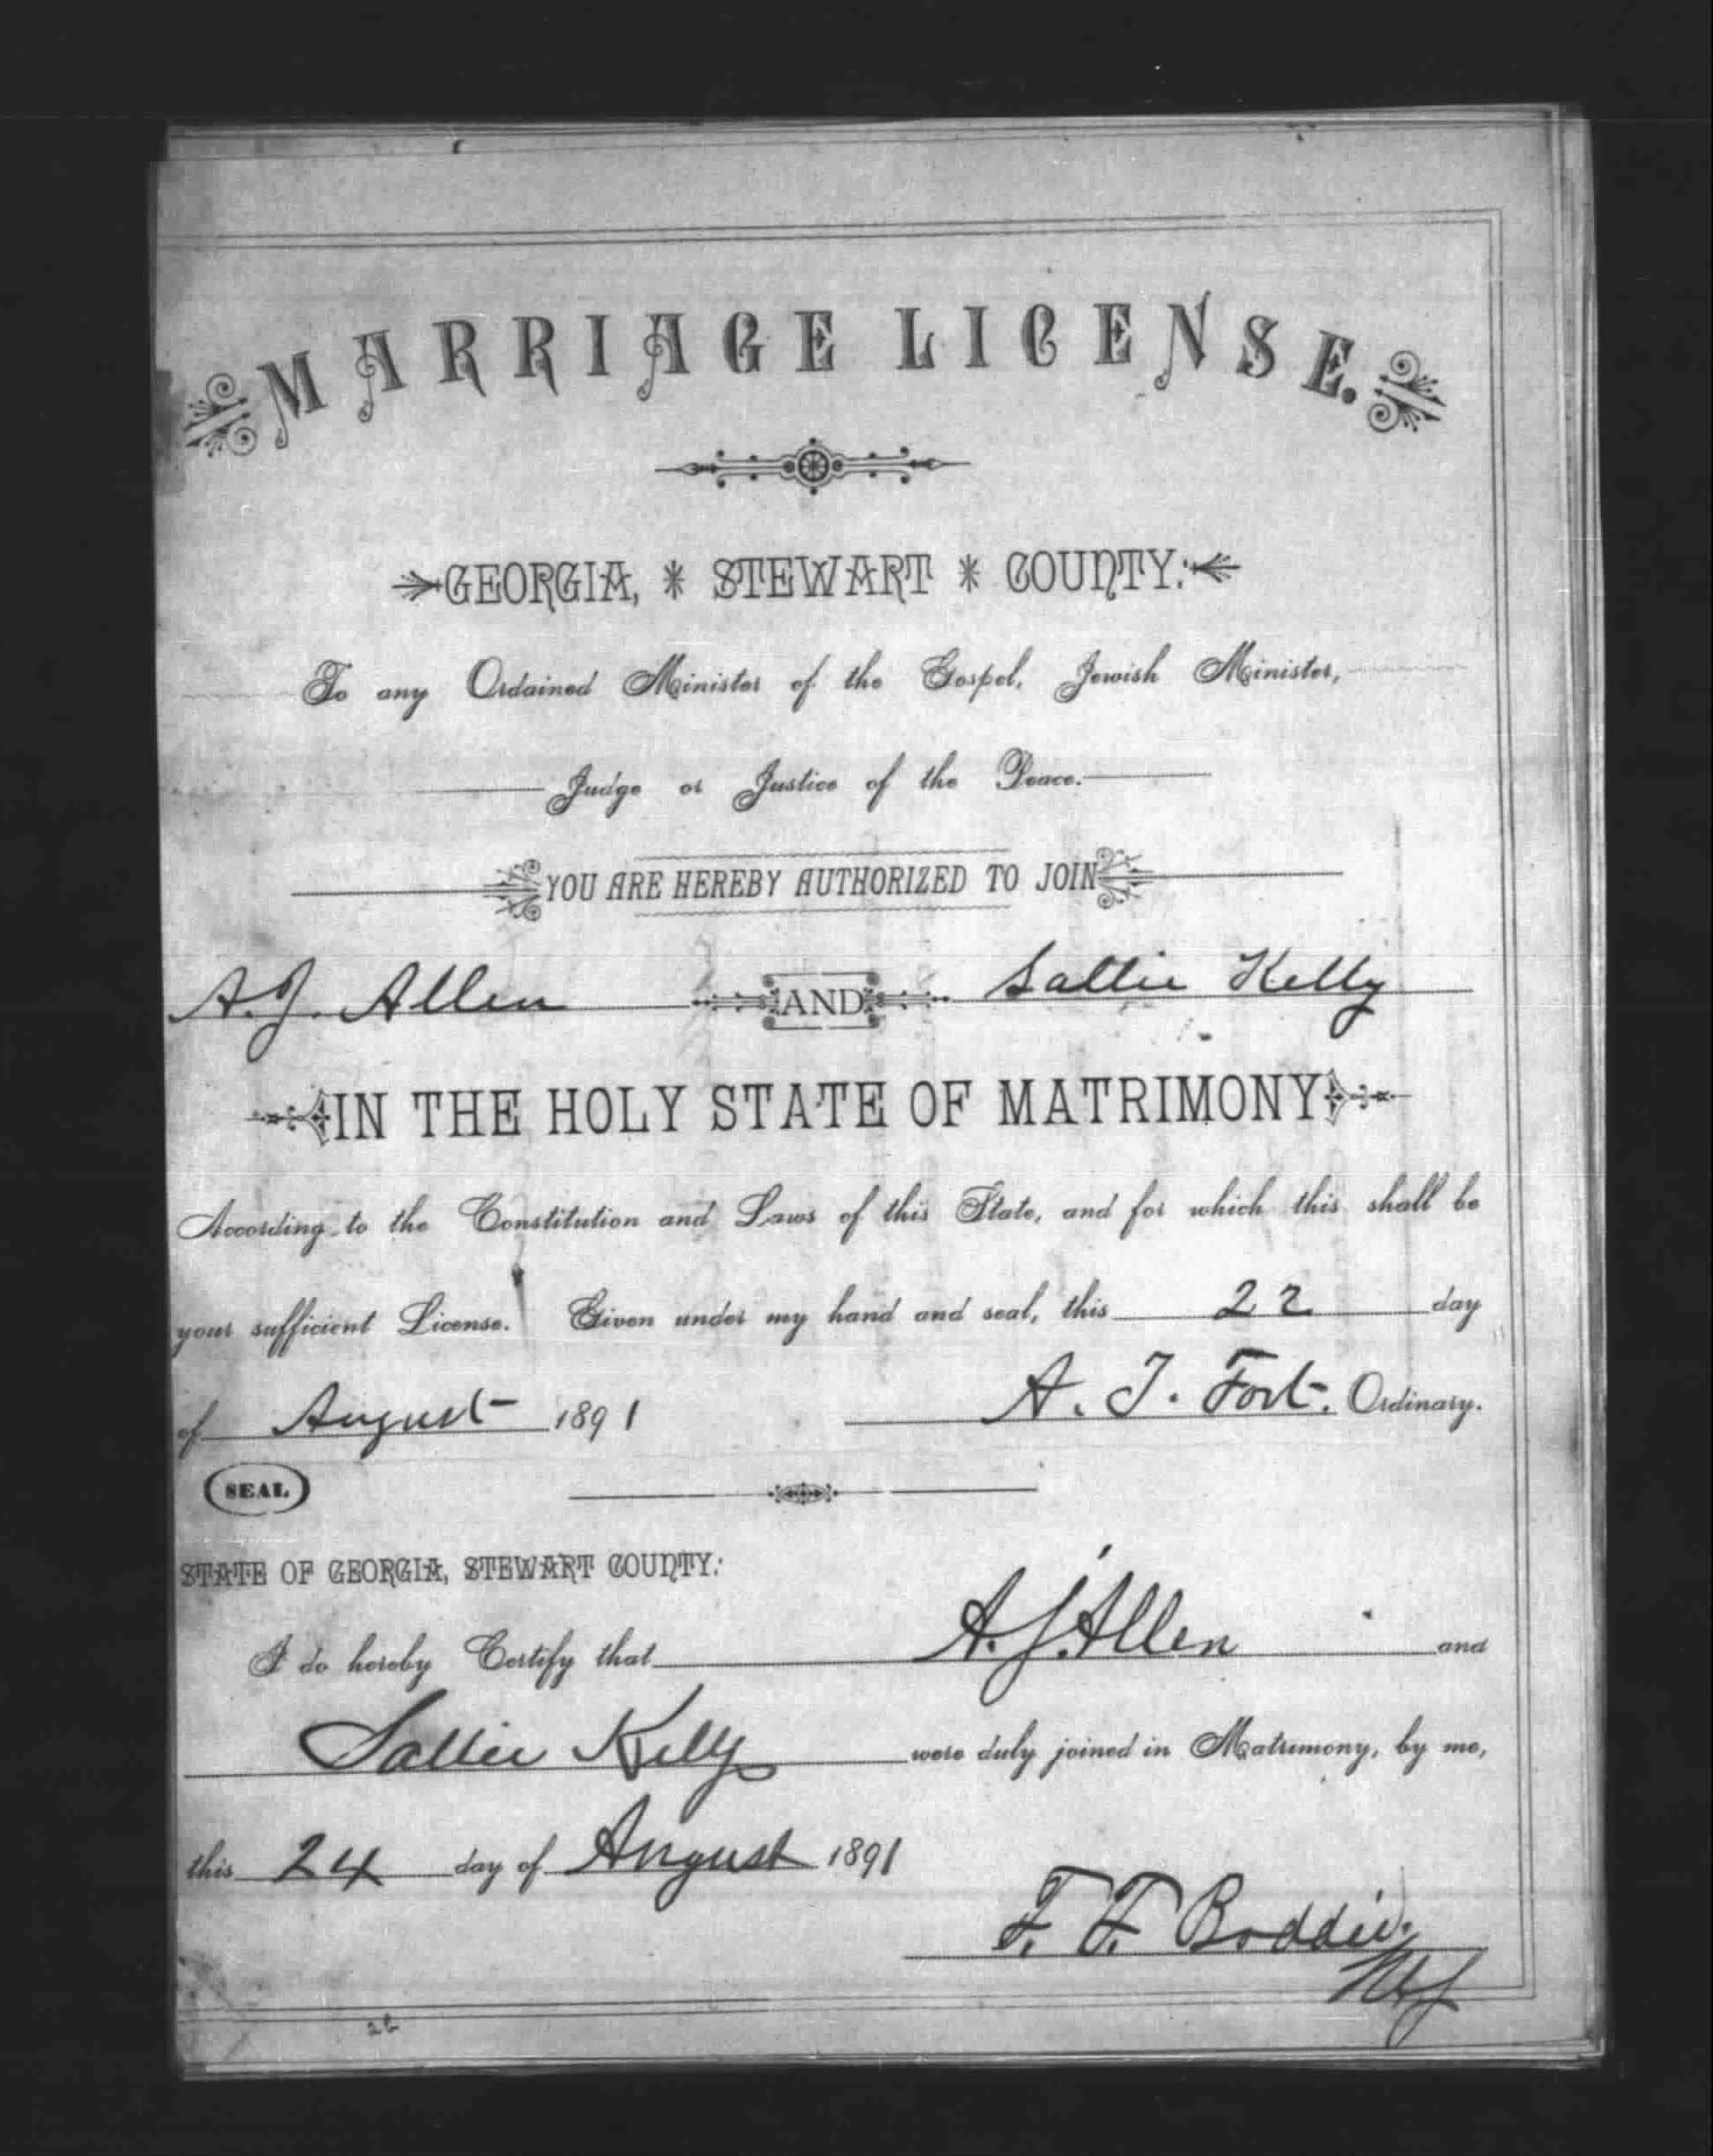 MARRIAGE LICENSE.
GEORGIA, * STEWART * COUNTY:
To any Ordained Minister of the Gospel, Jewish Minister,
Judge or Justice of the Peace.
YOU ARE HEREBY AUTHORIZED TO JOIN
A. J. Allen AND Sallie Kelly
IN THE HOLY STATE OF MATRIMONY
According to the Constitution and Laws of this State, and for which this shall be
your sufficient License. Given under my hand and seal, this 22 day
of August 1891 A. T. Fort. Ordinary.
SEAL
STATE OF GEORGIA, STEWART COUNTY:
I do hereby Certify that A. J. Allen and
Sallie Kelly were duly joined in Matrimony, by me,
this 24 day of August 1891
F. F. Boddie